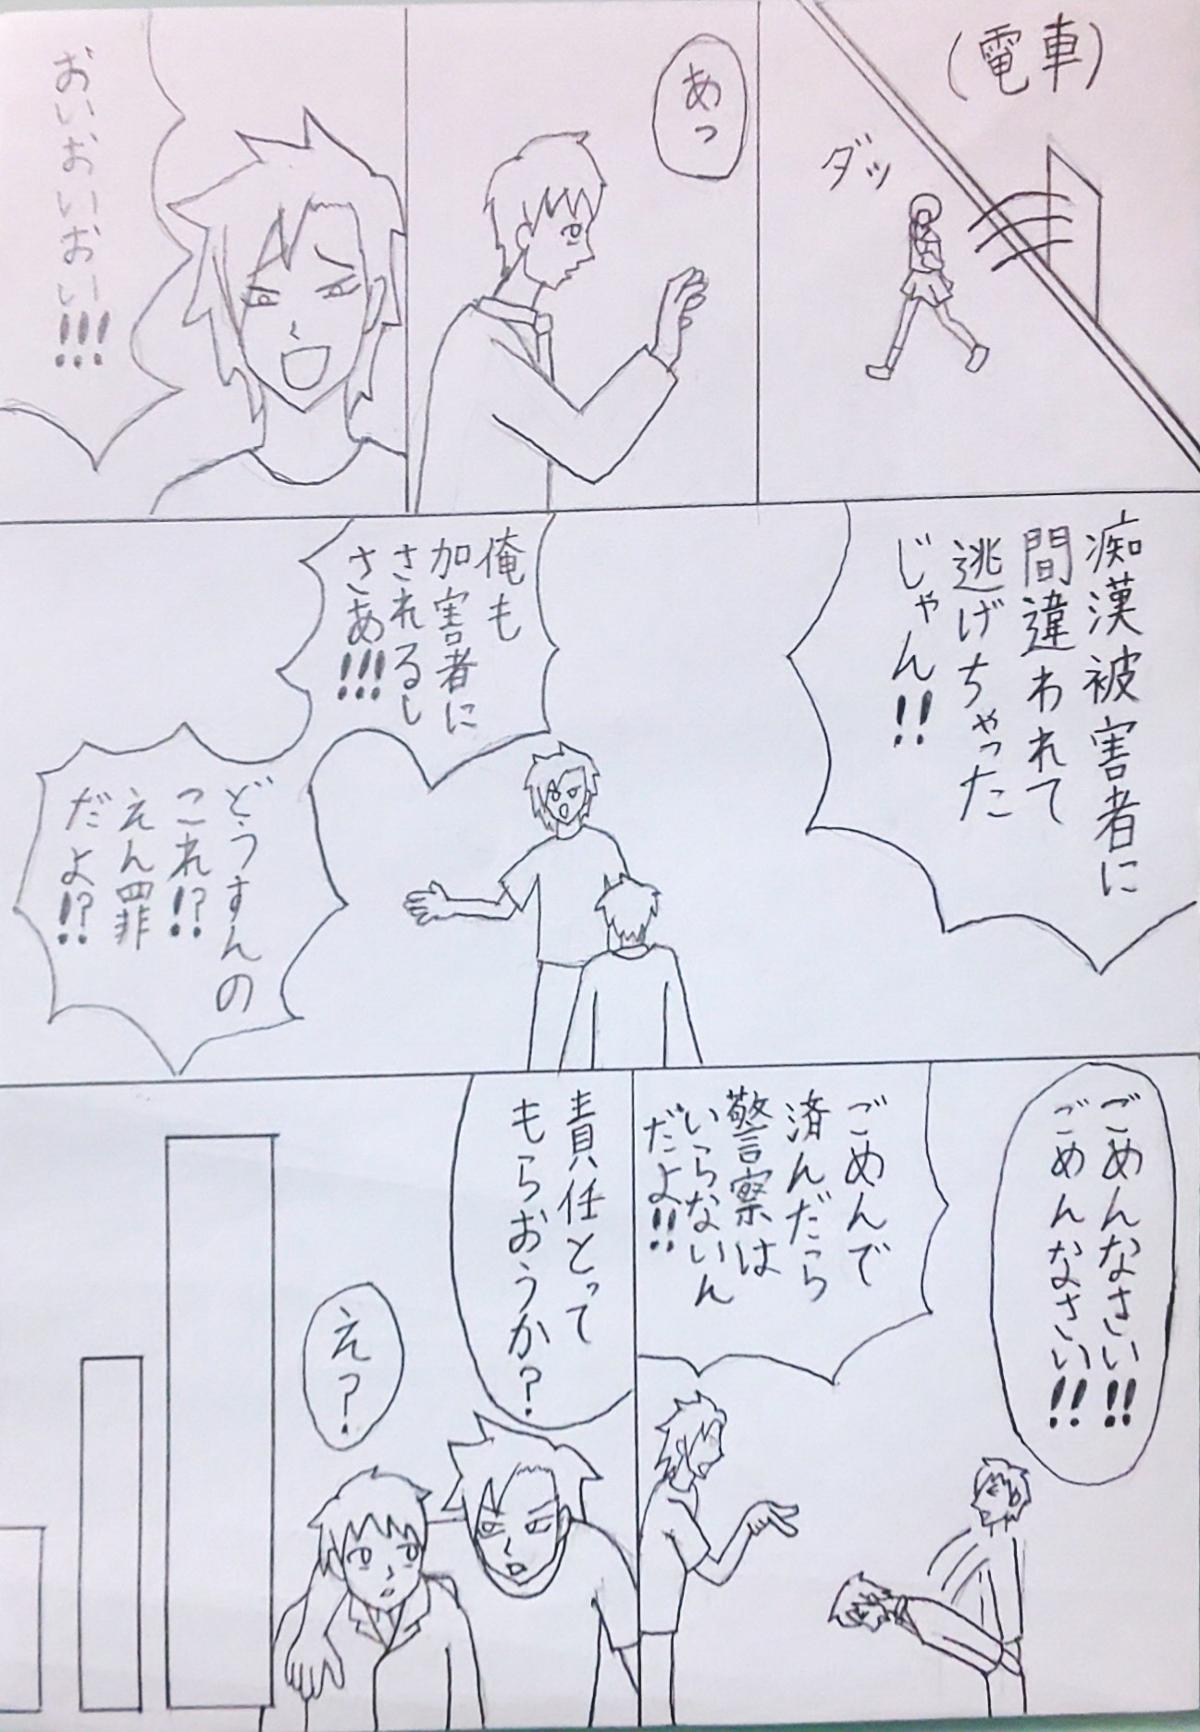 (電車)
ダッ
あっ
おいおいおい!!!
痴漢被害者に
間違われて
逃げちゃった
じゃん!!
俺も
加害者に
されるし
さあ!!!
どうすんの
これ!?
えん罪
だよ!?
ごめんなさい!!
ごめんなさい!!
ごめんで
済んだら
警察は
いらないん
だよ!!
責任とって
もらおうか?
え?